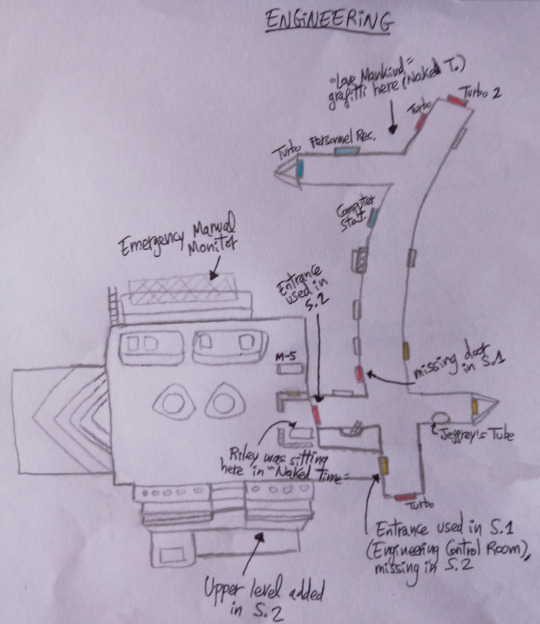 ENGINEERING
"Love Mankind"
grafitti here (Naked T.)
Turbo
Turbo 2
Turbo
Personnel Rec.
Computer
Stat.
Emergency Manual
Monitor
Entrance
used in
S.2
M-5
missing door
in S.1
Jeffrey's Tube
Riley was sitting
here in "Naked Time"
Turbo
Entrance used in S.1
(Engineering Control Room),
missing in S.2
Upper level added
in S.2